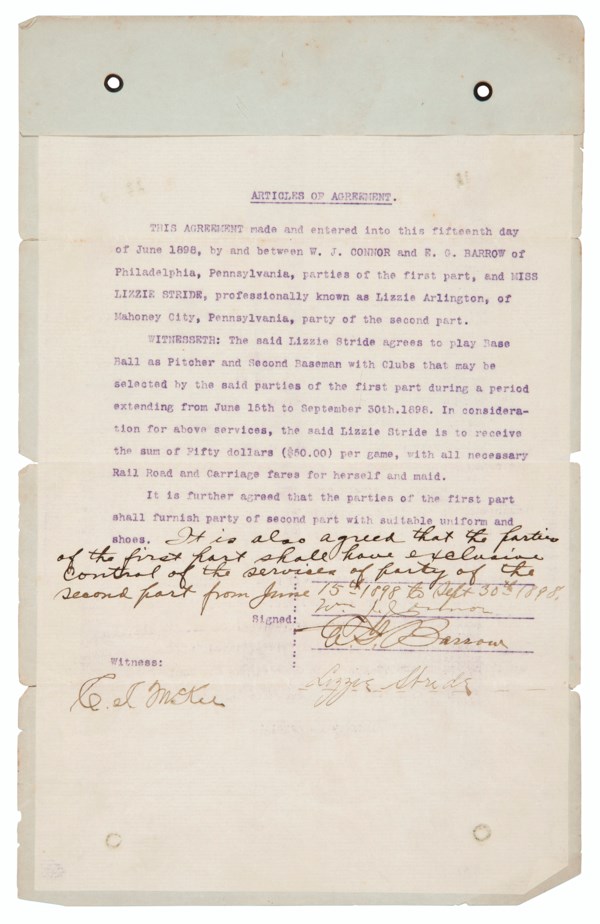 ARTICLES OF AGREEMENT.
THIS AGREEMENT made and entered into this fifteenth day
of June 1898, by and between W. J. CONNOR and E. G. BARROW of
Philadelphia, Pennsylvania, parties of the first part, and MISS
LIZZIE STRIDE, professionally known as Lizzie Arlington, of
Mahoney City, Pennsylvania, party of the second part.
WITNESSETH: The said Lizzie Stride agrees to play Base
Ball as Pitcher and Second Baseman with Clubs that may be
selected by the said parties of the first part during a period
extending from June 15th to September 30th.1898. In considera-
tion for above services, the said Lizzie Stride is to receive
the sum of Fifty dollars ($50.00) per game, with all necessary
Rail Road and Carriage fares for herself and maid.
It is further agreed that the parties of the first part
shall furnish party of second part with suitable uniform and
shoes. It is also agreed that the parties
of the first part shall have exclusive
control of the services of party of the
second part from June 15th 1898 to Sept 30th 1898.
Wm J. Connor
Signed: E. G. Barrow
Witness:
Lizzie Stride
McKee